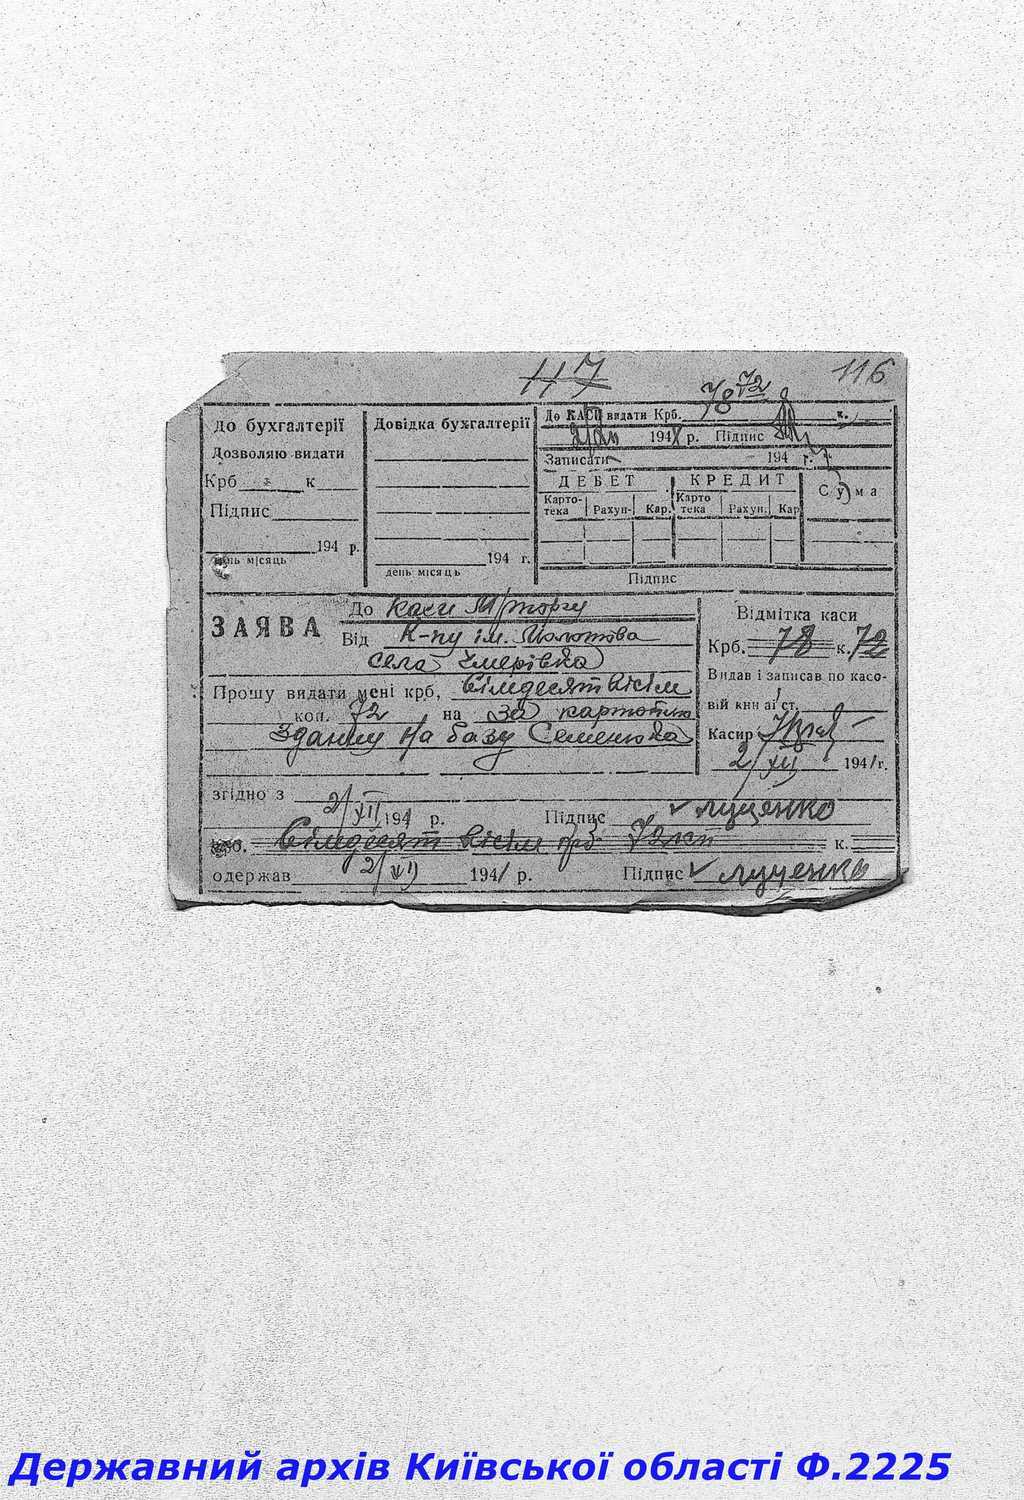 117 116
До бухгалтерії
Дозволяю видати
Крб к
Підпис
194 р.
день місяць
Довідка бухгалтерії
194 г.
день місяць
До КАСИ видати Крб. 78 72 к.
2/XII 194 р. Підпис
Записати 194 г.
ДЕБЕТ КРЕДИТ Сума
Карто-тека Рахун. Кар. Карто тека Рахун. Кар
Підпис
ЗАЯВА
До каси М/торгу
Від К-пу ім. Молотова
села
Прошу видати мені крб, сімдесят вісім
коп. 72 на за картоплю
здану на базу Семенюка
Відмітка каси
Крб. 78 к. 72
Видав і записав по касо-
вій кни ст.
Касир
2/XII 1941г.
згідно з
2/XII 194 р. Підпис Луценко
Крб. Сімдесят вісім крб 72 коп к.
одержав 2/XII 1941 р. Підпис Луценко
Державний архів Київської області Ф.2225